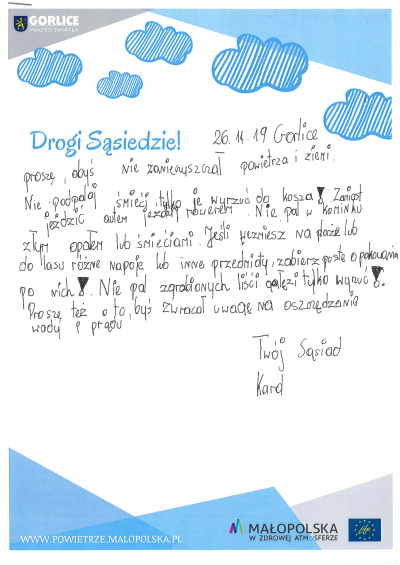 GORLICE
MIASTO ŚWIATŁA
Drogi Sąsiedzie!
26.11.19 Gorlice
proszę, abyś nie zanieczyszczał powietrza i ziemi.
Nie podpalaj śmieci tylko je wyrzuć do kosza! Zamiast
jeździć autem jezdzij rowerem. Nie pal w kominku
złym opałem lub śmieciami. Jeśli weźmiesz na plaże lub
do lasu różne napoje lub inne przedmioty, zabierz puste opakowania
po nich!. Nie pal zgrabionych liści gałęzi tylko wyrzuć!.
Proszę też o to, byś zwracał uwagę na oszczędzanie
wody i prądu
Twój Sąsiad
Karol
WWW.POWIETRZE.MALOPOLSKA.PL
MAŁOPOLSKA
W ZDROWEJ ATMOSFERZE